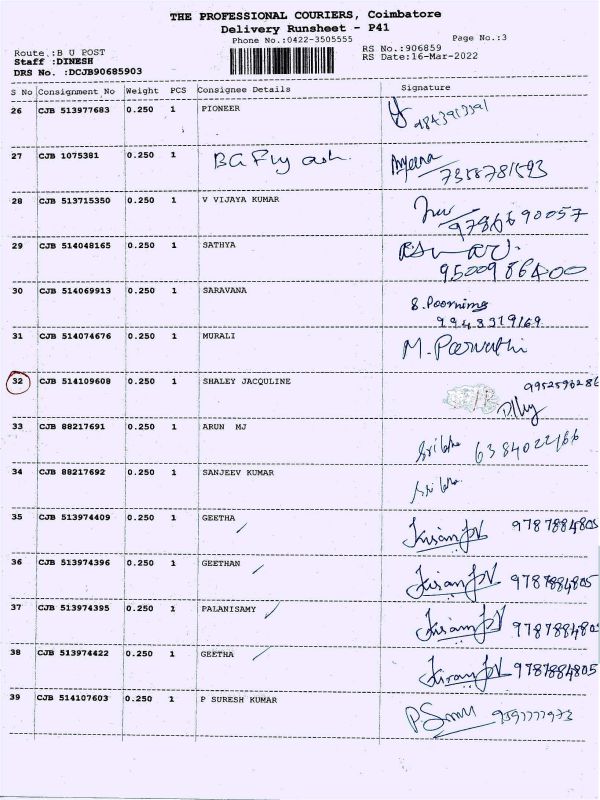 THE PROFESSIONAL COURIERS, Coimbatore
Delivery Runsheet - P41
Phone No.:0422-3505555
Page No.:3
Route :B U POST
RS No.:906859
Staff :DINESH
RS Date:16-Mar-2022
DRS No. :DCJB90685903
S No Consignment No Weight PCS Consignee Details Signature
26 CJB 513977683 0.250 1 PIONEER
27 CJB 1075381 0.250 1 BG Fly ash.
7358781593
28 CJB 513715350 0.250 1 V VIJAYA KUMAR
9786690057
29 CJB 514048165 0.250 1 SATHYA
9500986400
30 CJB 514069913 0.250 1 SARAVANA
S. Poornima
9943319169
31 CJB 514074676 0.250 1 MURALI M. Parvathi
32 CJB 514109608 0.250 1 SHALEY JACQULINE 9952596286
33 CJB 88217691 0.250 1 ARUN MJ
34 CJB 88217692 0.250 1 SANJEEV KUMAR
35 CJB 513974409 0.250 1 GEETHA 9787884805
36 CJB 513974396 0.250 1 GEETHAN 9787884805
37 CJB 513974395 0.250 1 PALANISAMY 9787884805
38 CJB 513974422 0.250 1 GEETHA 9787884805
39 CJB 514107603 0.250 1 P SURESH KUMAR